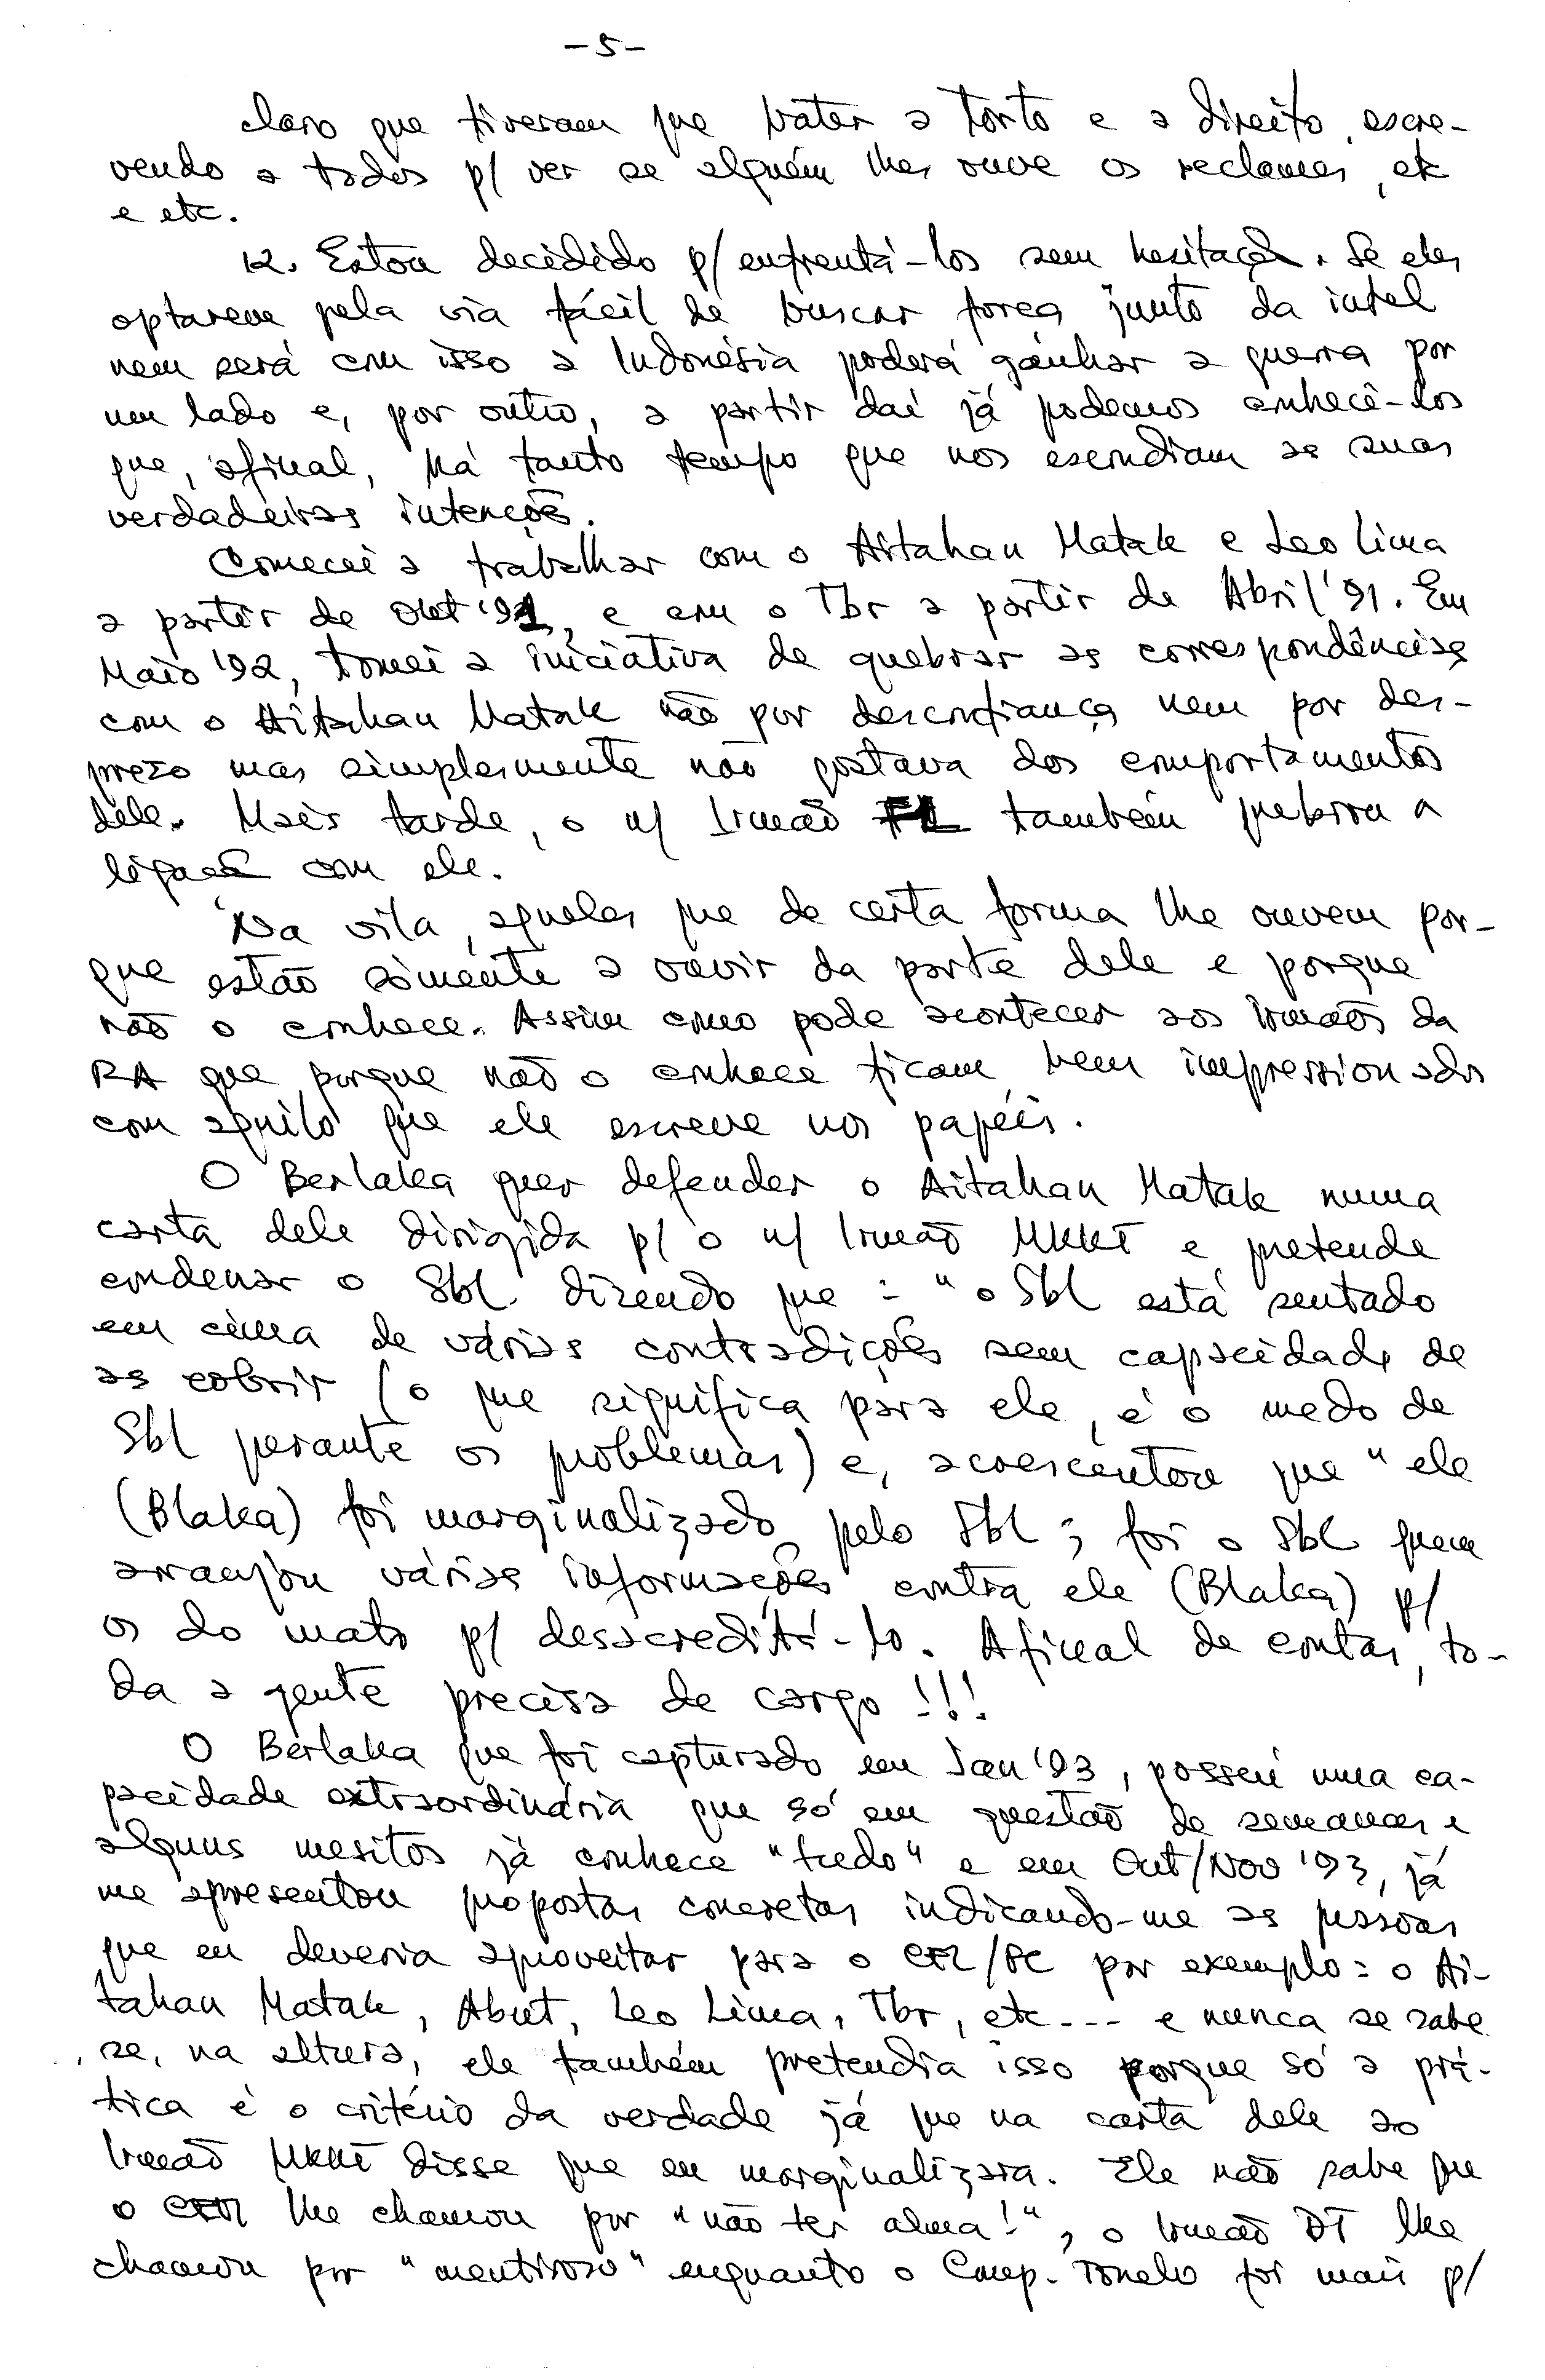 -5-
claro que tiveram que bater a torto e a direito, escre-
vendo a todos p/ ver se alguém lhes ouve os reclames, etc
e etc.
12. Estou decidido p/ enfrentá-los sem hesitação. Se eles
optarem pela via fácil de buscar força junto da intel
nem será com isso a Indonésia poderá ganhar a guerra por
um lado e, por outro, a partir daí já podemos conhecê-los
que, afinal, há tanto tempo que nos escondiam as suas
verdadeiras intenções.
Comecei a trabalhar com o Aitahan Matak e Leo Lima
a partir de Out '91, e com o Tbr a partir de Abril '91. Em
Maio '92, tomei a iniciativa de quebrar as correspondências
com o Aitahan Matak não por desconfiança nem por des-
prezo mas simplesmente não gostava dos comportamentos
dele. Mais tarde, o n/ Irmão FL também quebrou a
ligação com ele.
Na vila, aqueles que de certa forma lhe ouvem por-
que estão sòmente a ouvir da parte dele e porque
não o conhece. Assim como pode acontecer aos Irmãos da
RA que porque não o conhece ficam bem impressionados
com aquilo que ele escreve nos papéis.
O Berlaka quer defender o Aitahan Matak numa
carta dele dirigida p/ o n/ Irmão MKKT e pretende
condenar o Sbl dizendo que: "o Sbl está sentado
em cima de várias contradições sem capacidade de
as cobrir (o que significa para ele, é o medo de
Sbl perante os problemas) e, acrescentou que "ele
(Blaka) foi marginalizado pelo Sbl; foi o Sbl quem
arranjou várias informações contra ele (Blaka) p/
os do mato p/ desacreditá-lo. Afinal de contas, to-
da a gente precisa de cargo!!!
O Berlaka que foi capturado em Jan '93, possui uma ca-
pacidade extraordinária que só em questão de semanas e
alguns mesitos já conhece "tudo" e em Out/Nov '93, já
me apresentou propostas concretas indicando-me as pessoas
que eu deveria aproveitar para o CEL/FC por exemplo: o Ai-
tahan Matak, Abut, Leo Lima, Tbr, etc--- e nunca se sabe
se, na altura, ele também pretendia isso porque só a prá-
tica é o critério da verdade já que na carta dele ao
Irmão MKKT disse que eu marginalizara. Ele não sabe que
o lhe chamou por "não ter alma!", o Irmão DT lhe
chamou por "mentiroso" enquanto o Comp. Konelio foi mais p/